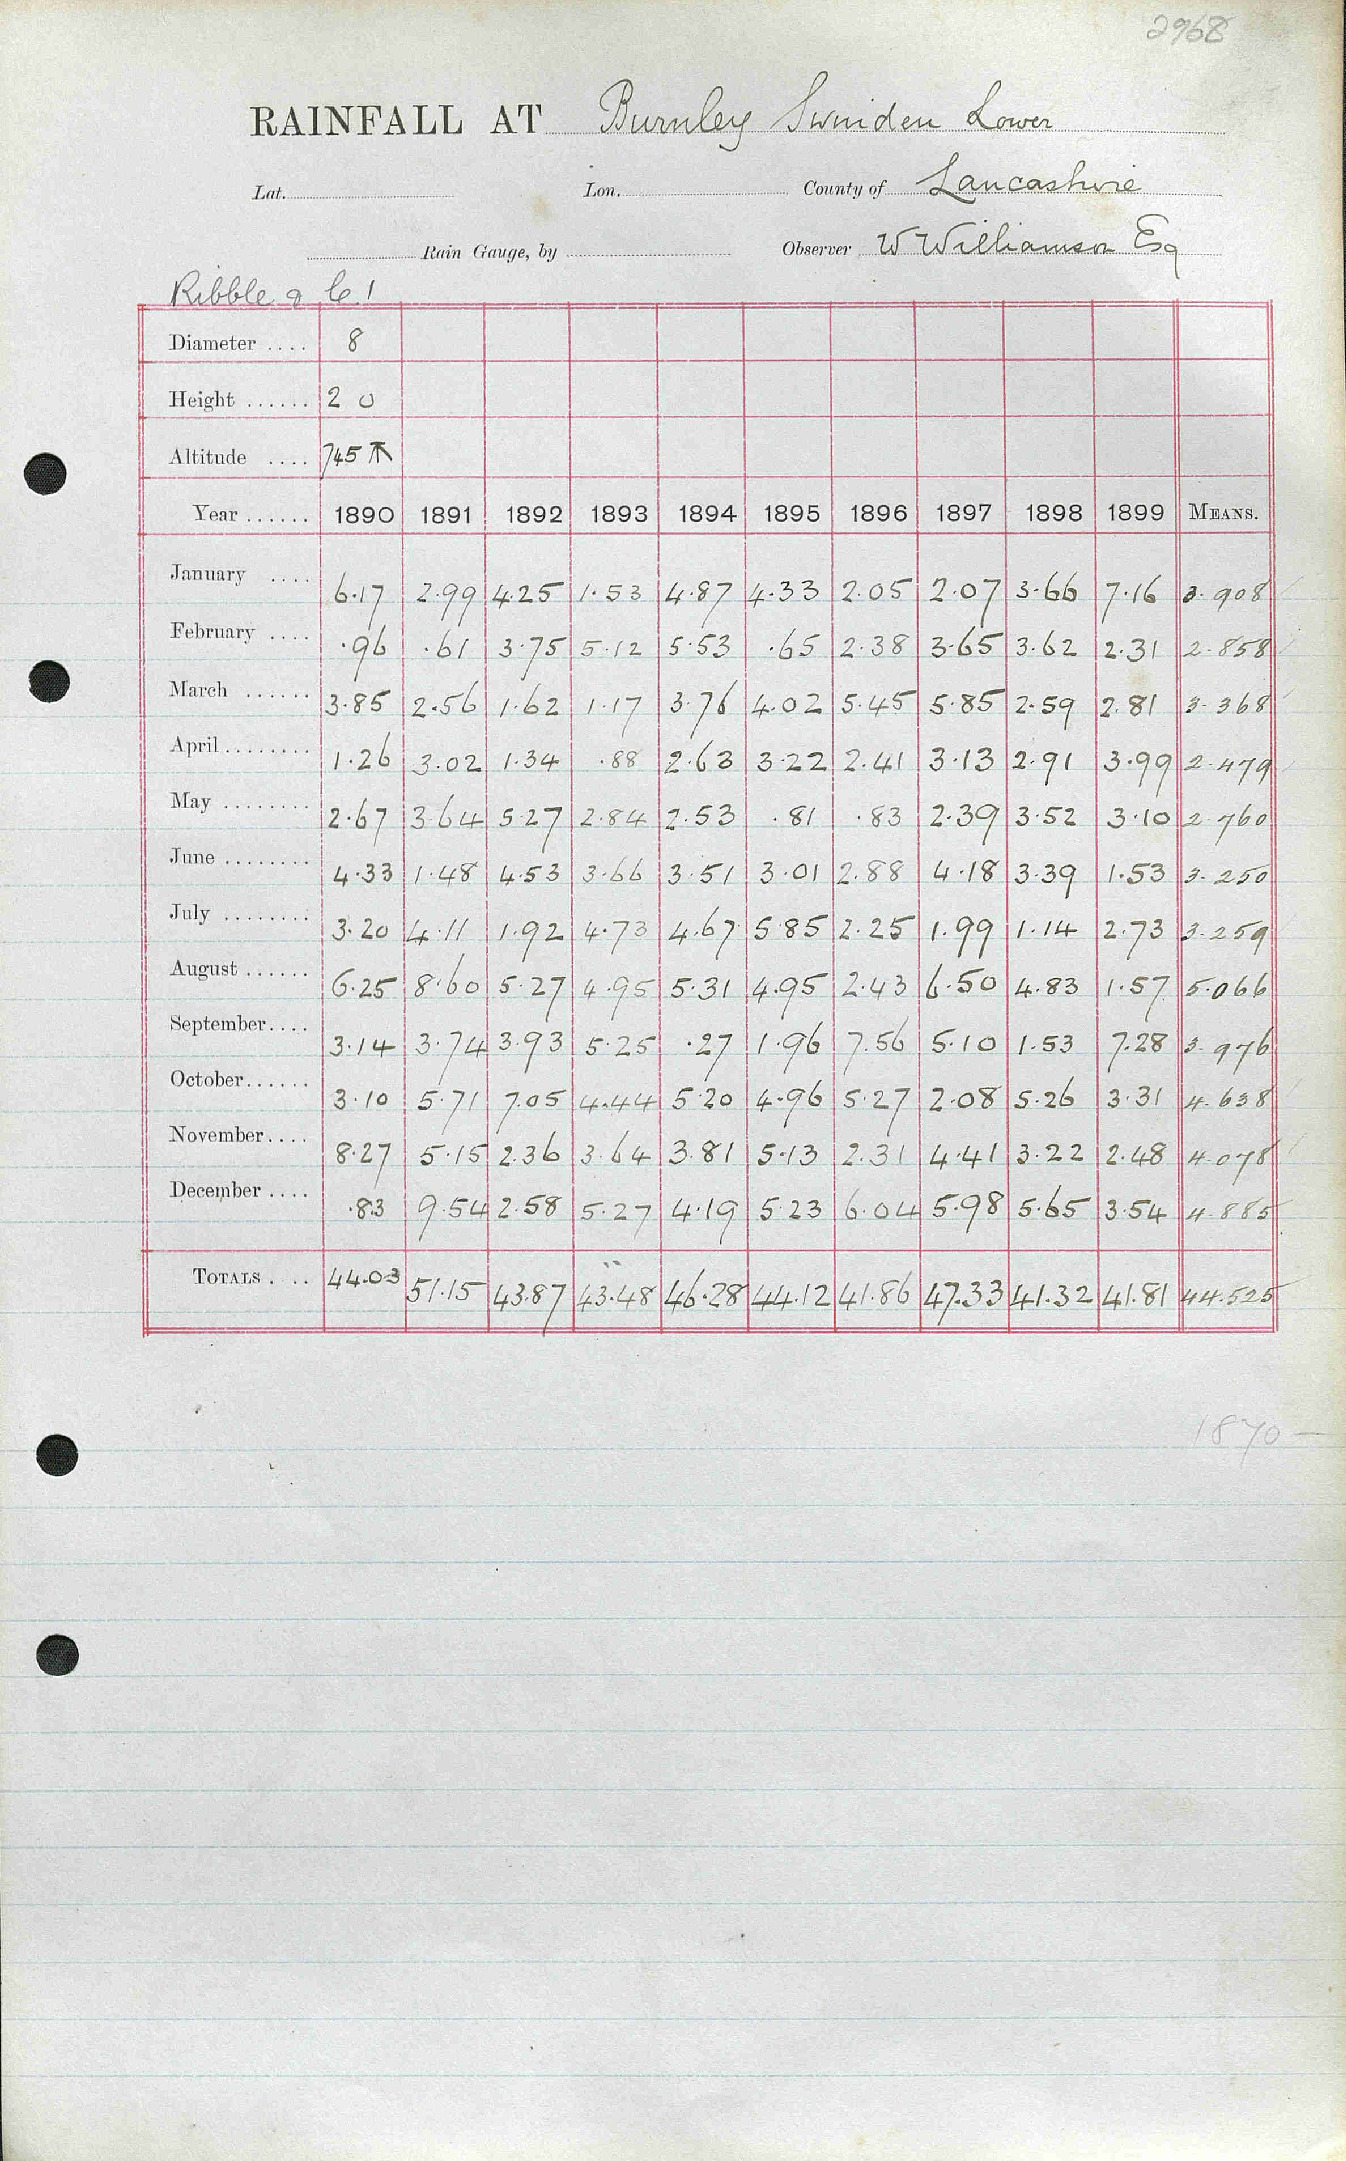 2968
RAINFALL AT Burnley Swinden Lower
Lat. Lon. County of Lancashire
Rain Gauge, by Observer W Williamson Esq
Ribble &
Diameter .... 8
Height ...... 2 0
Altitude .... 745
Year ...... 1890 1891 1892 1893 1894 1895 1896 1897 1898 1899 MEANS.
January .... 6.17 2.99 4.25 1.53 4.87 4.33 2.05 2.07 3.66 7.16 3.908
February .... .96 .61 3.75 5.12 5.53 .65 2.38 3.65 3.62 2.31 2.858
March ...... 3.85 2.56 1.62 1.17 3.76 4.02 5.45 5.85 2.59 2.81 3.368
April ........ 1.26 3.02 1.34 .88 2.63 3.22 2.41 3.13 2.91 3.99 2.479
May ........ 2.67 3.64 5.27 2.84 2.53 .81 .83 2.39 3.52 3.10 2.760
June ........ 4.33 1.48 4.53 3.66 3.51 3.01 2.88 4.18 3.39 1.53 3.250
July ........ 3.20 4.11 1.92 4.73 4.67 5.85 2.25 1.99 1.14 2.73 3.259
August ...... 6.25 8.60 5.27 4.95 5.31 4.95 2.43 6.50 4.83 1.57 5.066
September.... 3.14 3.74 3.93 5.25 .27 1.96 7.56 5.10 1.53 7.28 3.976
October...... 3.10 5.71 7.05 4.44 5.20 4.96 5.27 2.08 5.26 3.31 4.638
November.... 8.27 5.15 2.36 3.64 3.81 5.13 2.31 4.41 3.22 2.48 4.078
December .... .83 9.54 2.58 5.27 4.19 5.23 6.04 5.98 5.65 3.54 4.885
TOTALS .... 44.03 51.15 43.87 43.48 46.28 44.12 41.86 47.33 41.32 41.81 44.525
1870 —